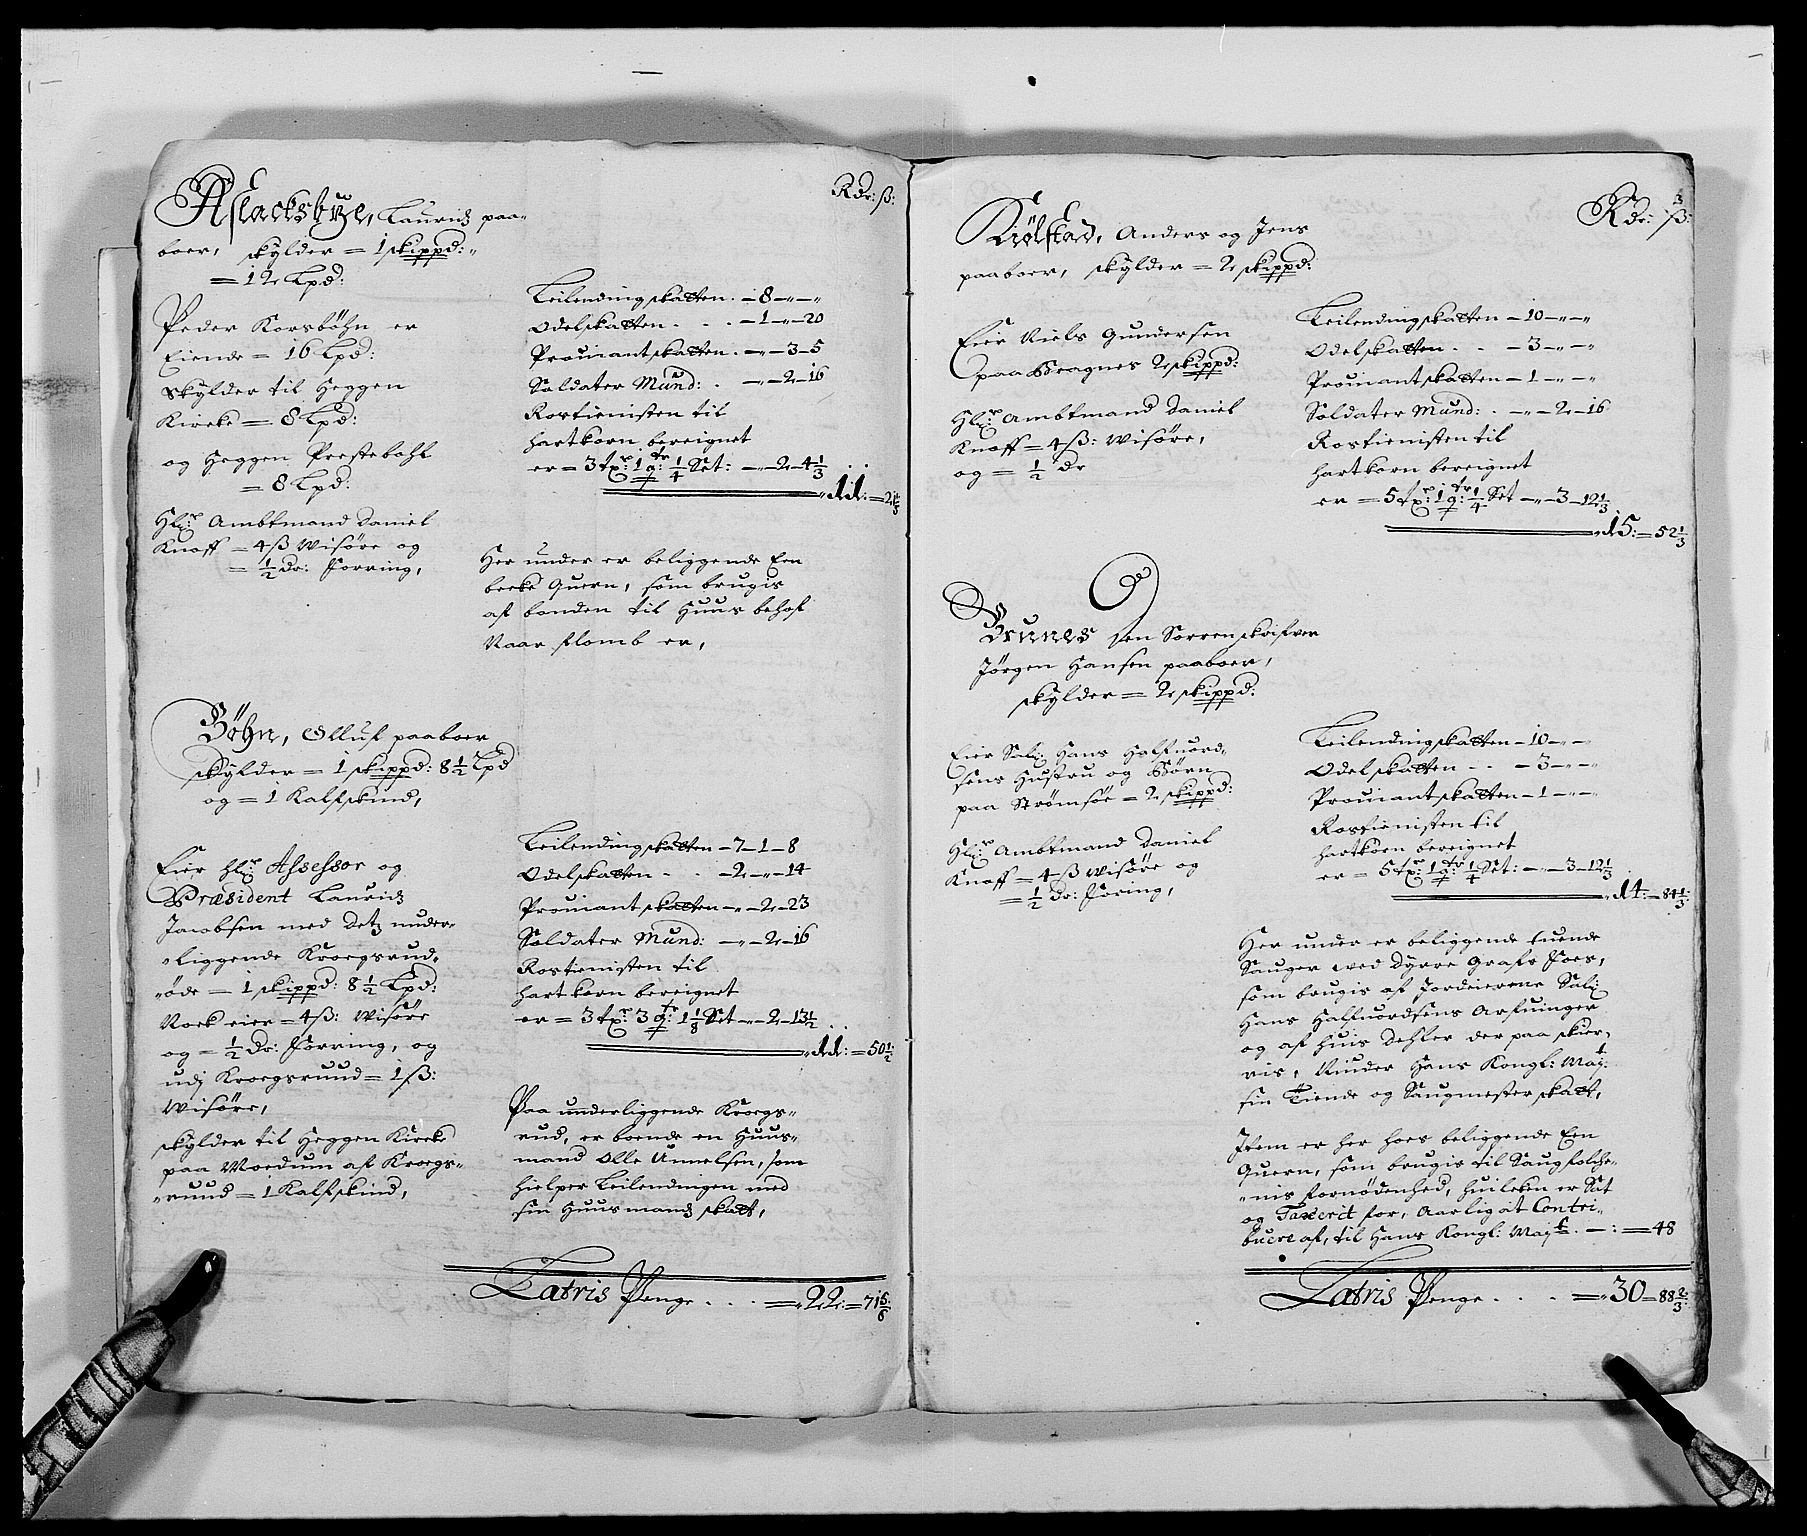 Rdr: ß:
Aslacksbye, Lauridz paa-
boer, skylder = 1 skippd: „
= 12 Lpd:
Peder Korsbøhn er
Eiende = 16 Lpd:
skylder til Heggen
Kircke = 8 Lpd:
og Heggen Prestebohl
= 8 Lpd:
Hl:r Ambtmand Daniel
Knoff = 4 ß Wisøre og
= ½ Dr: Forring,
Leilending skatten. – 8 – „ – „
Odelskatten . . . – 1 – „ – 20
Prouiant skatten. – „ – 3 – 5
Soldater Mund: . – „ – 2 – 16
Rostienisten til
hartkorn bereignet
er = 3 tr: 1 q: ¼ Set: – „ – 2 – 4⅓
11: = 21⅓
Her under er beliggende Een
becke Quern, som brugis
af bonden til Huus behof
Naar flomb er,
Bøhn, Olluf paaboer
skylder = 1 skippd: 8½ Lpd
og = 1 Kalfskind,
Eier Hl:r Assessor og
Præsident Lauridz
Jacobsen med Detz under-
liggende Kroegsrud-
øde = 1 skippd: 8½ Lpd:
Noch eier = 4 ß: Wisøre
og = ½ Dr: Forring, og
udj Kroegsruud = 1 ß:
Wisøre,
skylder til Heggen Kircke
paa Modum af Kroegs-
ruud = 1 Kalfskind,
Leilending skatten – 7 – 1 – 8
Odelskatten . . – 2 – „ – 14
Prouiant skatten – „ – 2 – 23
Soldater Mund: – „ – 2 – 16
Rostienisten til
hartkorn bereignet
er = 3 tr: 3 q: 1⅛ Set – „ – 2 – 13½
11: = 50½
Paa underliggende Kroegs-
rud, er boende en Huus-
mand Olle Annelsen, som
hielper Leilendingen med
sin Huusmandz skatt,
Latris Penge . . . = 22: = 71⅚
Rdr: ß:
Kiølstad, Anders og Jens
paaboer, skylder = 2 skippd:
Eier Niels Gundersen
paa Bragnes 2 skippd:
Hl:r Ambtmand Daniel
Knoff = 4 ß: Wisøre,
og = ½ Dr
Leilending skatten – 10 – „ – „
Odelskatten . . – 3 – „ – „
Prouiant skatten – 1 – „ – „
Soldater Mund: . – „ – 2 – 16
Rostienisten til
hartkorn bereignet
er = 5 tr: 1 q: ¼ Set – „ – 3 – 12⅓
15: = 52⅓
Brunes sen Sorrenskrifver
Jørgen Hansen paaboer,
skylder = 2 skippd:
Eier Sal: Hans Halfuord-
sens Hustru og Børn
paa Strømsøe = 2 skippd:
Hl:r Ambtmand Daniel
Knoff = 4 ß Wisøre og
= ½ Dr: Foring,
Leilending skatten – 10 – „ – „
Odelskatten . . – 3 – „ – „
Prouiant skatten – 1 – „ – „
Rostienisten til
hartkorn bereignet
er = 5 tr: 1 q: ¼ Set: – „ – 3 – 12⅓
14: = 84⅓:
Her under er beliggende tuende
Sauger ved Dyrre Grafs Foes,
som brugis af Jordeierene Sal:
Hans Halfuordsens Arfuinger
og af huis Dehler der paa skier-
ris, Niuder Hans Kongl: Maj:t
sin Tiende og Saugmester skatt,
Item er her hoes beliggende Een
Quern, som brugis til Saugfolche-
nis fornødenhed, huilcken er Sat
og Taxerit for, Aarlig at Contri-
buere af, til Hans Kongl: Maj:t . – : = 48
Latris Penge . . . = 30 = 88⅔: